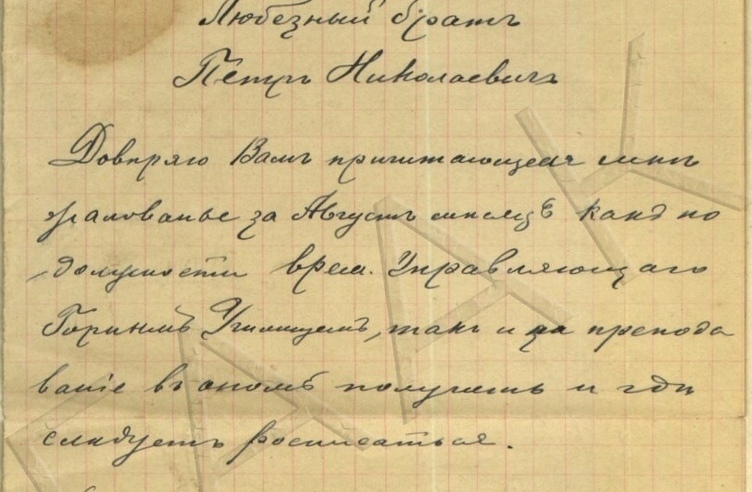 Любезный братъ
Пётръ Николаевичъ
Довѣряю Вамъ причитающееся мнѣ
жалованье за Августъ мѣсяцъ какъ по
должности врем. Управляющаго
Горнымъ Училищемъ, такъ и за препода
ваніе въ ономъ получить и гдѣ
слѣдуетъ росписаться.